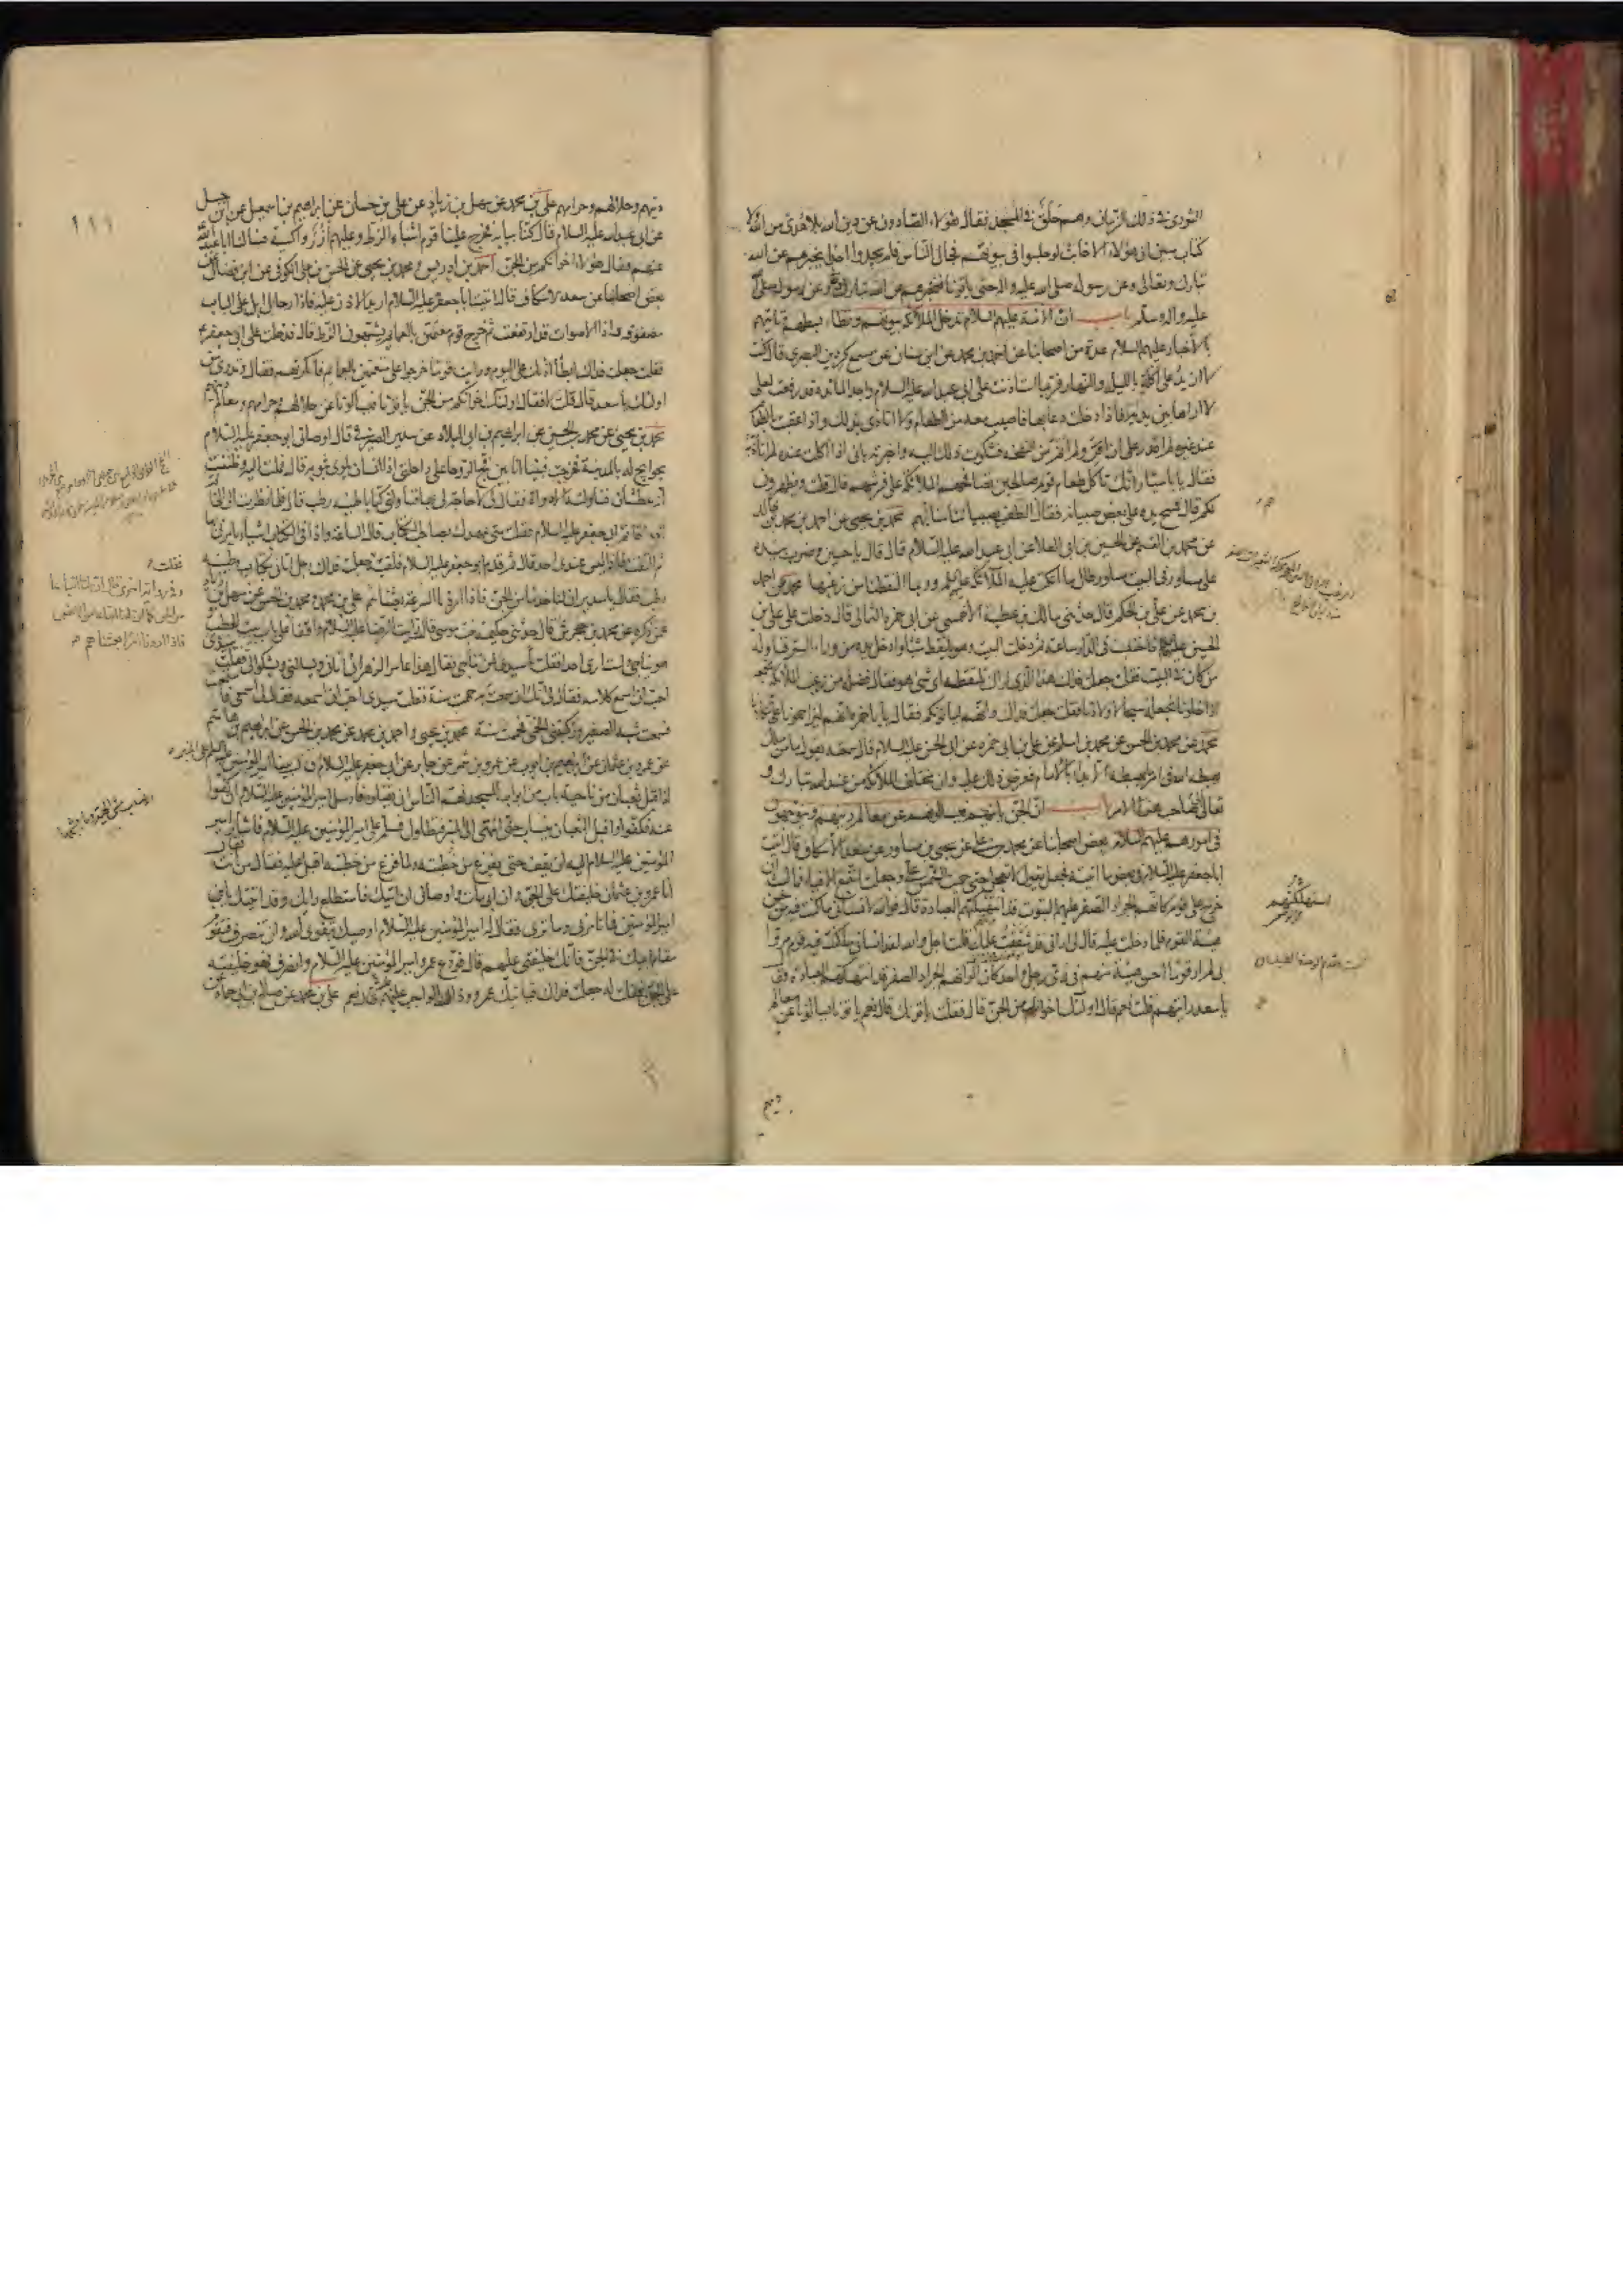 الثوري في ذلك الزمان وهم حلق في المسجد فقال هؤلاء الصادون عن دين الله بلا هدى من الله ولا
كتاب مبين ان هؤلاء الاخابث لو جلسوا في بيوتهم فجال الناس فلم يجدوا احدا يخبرهم عن الله
تبارك وتعالى وعن رسوله صلى الله عليه واله حتى ياتونا فنخبرهم عن الله تبارك وتعالى وعن رسوله صلى الله
عليه واله وسلم باب ان الائمة عليهم السلام تدخل الملائكة بيوتهم وتطاء بسطهم وتاتيهم
بالاخبار عليهم السلام عدة من اصحابنا عن احمد بن محمد عن ابن سنان عن مسمع كردين البصري قال كنت
لا ازيد على اكلة بالليل والنهار فربما استاذنت على ابي عبد الله عليه السلام واجد المائدة قد رفعت لعلي
لا اراها بين يديه فاذا دخلت دعا بها فاصيب معه من الطعام ولا اتاذى بذلك واذا عقبت بالطعام
عند غيره لم اقدر على ان اقر ولم انم من النفخة فشكوت ذلك اليه واخبرته باني اذا اكلت عنده لم اتاذ به
فقال يا با سيار انك تاكل طعام قوم صالحين تصافحهم الملائكة على فرشهم قال قلت ويظهرون
لكم قال فمسح يده على بعض صبيانه فقال الطف بصبياننا منا بهم محمد بن يحيى عن احمد بن محمد بن خالد
عن محمد بن القسم عن الحسين بن ابي العلا عن ابي عبد الله عليه السلام قال قال يا حسين وضرب بيده
على مساور في البيت مساور طال ما اتكت عليه الملائكة عليهم وربما التقطنا من زغبها محمد عن احمد
بن محمد عن علي بن الحكم قال حدثني مالك بن عطية الاحمسي عن ابي حمزة الثمالي قال دخلت على علي بن
الحسين فاحتبست في الدار ساعة ثم دخلت البيت وهو يلتقط شيئا وادخل يده من وراء الستر فناوله
من كان في البيت فقلت جعلت فداك هذا الذي اراك تلتقطه اي شئ هو فقال فضلة من زغب الملائكة نجمعه
اذا خلونا نجعله سيحا لاولادنا فقلت جعلت فداك وانهم لياتونكم فقال يا با حمزة انهم ليزاحمونا على تكاتنا
محمد عن محمد بن الحسن عن محمد بن اسلم عن علي بن ابي حمزة عن ابي الحسن عليه السلام قال سمعته يقول ما من ملك
يهبطه الله في امر ما يهبطه الا بدا بالامام فعرض ذلك عليه وان مختلف الملائكة من عند الله تبارك و
تعالى الى صاحب هذا الامر باب ان الجن ياتيهم فيسالونهم عن معالم دينهم ويتوجهون
في امورهم عليهم السلام بعض اصحابنا عن محمد بن علي عن يحيى بن مساور عن سعد الاسكاف قال اتيت
ابا جعفر عليه السلام في بعض ما اتيته فجعل يقول لا تعجل حتى حميت الشمس علي وجعلت اتتبع الافياء فما لبث ان
خرج علي قوم كانهم الجراد الصفر عليهم البتوت قد انتهكتهم العبادة قال فوالله لانساني ما كنت فيه من حسن
هيئة القوم فلما دخلت عليه قال لي اراني قد شققت عليك قلت اجل والله لقد انساني ما كنت فيه قوم مروا
بي لم ار قوما احسن هيئة منهم في زي رجل واحد كان الوانهم الجراد الصفر قد انتهكتهم العبادة فقال
يا سعد رايتهم قلت نعم قال اولئك اخوانك من الجن قال فقلت ياتونك قال نعم ياتونا يسالونا عن معالم
دينهم
استهلكتهم
دينهم وحلالهم وحرامهم علي بن محمد عن سهل بن زياد عن علي بن حسان عن ابراهيم بن اسمعيل عن ابن جبل
عن ابي عبد الله عليه السلام قال كنا ببابه فخرج علينا قوم اشباه الزط وعليهم ازر واكسية فسالنا ابا عبد الله
عنهم فقال هؤلاء اخوانكم من الجن احمد بن ادريس ومحمد بن يحيى عن الحسن بن علي الكوفي عن ابن فضال عن
بعض اصحابنا عن سعد الاسكاف قال اتيت ابا جعفر عليه السلام اريد الاذن عليه فاذا رحال ابل على الباب
مصفوفة واذا الاصوات قد ارتفعت ثم خرج قوم معتمين بالعمايم يشبهون الزط قال فدخلت على ابي جعفر ع
فقلت جعلت فداك ابطا اذنك علي اليوم ورايت قوما خرجوا علي متعمين بالعمايم فانكرتهم فقال وتدري من
اولئك يا سعد قال قلت لا فقال اولئك اخوانكم من الجن ياتونا فيسالونا عن حلالهم وحرامهم ومعالم دينهم
محمد بن يحيى عن محمد بن الحسين عن ابراهيم بن ابي البلاد عن سدير الصيرفي قال اوصاني ابو جعفر عليه السلام
بحوايج له بالمدينة فخرجت فبينا انا بين فج الروحا على راحلتي اذا انسان يلوي ثوبه قال فملت اليه وظننت
انه عطشان فناولته الاداوة فقال لي لا حاجة لي بها فناولني كتابا طينه رطب قال فلما نظرت الى الخاتم
اذا خاتم ابي جعفر عليه السلام فقلت متى عهدك بصاحب الكتاب قال الساعة واذا في الكتاب اشياء يامرني بها
ثم التفت فاذا ليس عندي احد قال ثم قدم ابو جعفر عليه السلام فلقيته فقلت جعلت فداك رجل اتاني بكتاب وطينه
رطب فقال يا سدير ان لنا خدما من الجن فاذا اردنا السرعة بعثناهم علي بن محمد ومحمد بن الحسن عن سهل بن زياد
عمن ذكره عن محمد بن جحرش قال حدثتني حكيمة بنت موسى قالت رايت الرضا عليه السلام واقفا على باب بيت الحطب
وهو يناجي ولست ارى احدا فقلت يا سيدي لمن تناجي فقال هذا عامر الزهرائي اتاني يسالني ويشكو الي فقلت سيدي
احب ان اسمع كلامه فقال لي انك ان سمعت به حممت سنة فقلت سيدي احب ان اسمعه فقال لي اسمعي فاستمعت
فسمعت شبه الصفير وركبتني الحمى فحممت سنة محمد بن يحيى واحمد بن محمد عن محمد بن الحسن عن ابراهيم بن هاشم
عن عمرو بن عثمان عن ابراهيم بن ايوب عن عمرو بن شمر عن جابر عن ابي جعفر عليه السلام قال بينا امير المؤمنين عليه السلم على المنبر
اذ اقبل ثعبان من ناحية باب من ابواب المسجد فهم الناس ان يقتلوه فارسل امير المؤمنين عليه السلام ان كفوا
عنه فكفوا واقبل الثعبان ينساب حتى انتهى الى المنبر فتطاول فسلم على امير المؤمنين عليه السلام فاشار امير
المؤمنين عليه السلام اليه ان يقف حتى يفرغ من خطبته ولما فرغ من خطبته اقبل عليه فقال من انت فقال
انا عمرو بن عثمان خليفتك على الجن وان ابي مات واوصاني ان اتيك فاستطلع رايك وقد اتيتك يا
امير المؤمنين فما تامرني وما ترى فقال له امير المؤمنين عليه السلام اوصيك بتقوى الله وان تنصرف فتقوم
مقام ابيك في الجن فانك خليفتي عليهم قال فودع عمرو امير المؤمنين عليه السلام وانصرف فهو خليفته
على الجن فقلت له جعلت فداك فياتيك عمرو وذاك الواجب عليه قال نعم علي بن محمد عن صالح بن ابي حماد عن
فقلت
وفي رواية اخرى قال ان لنا اتباعا
من الجن كما ان لنا اتباعا من الانس
فاذا اردنا امرا بعثناهم